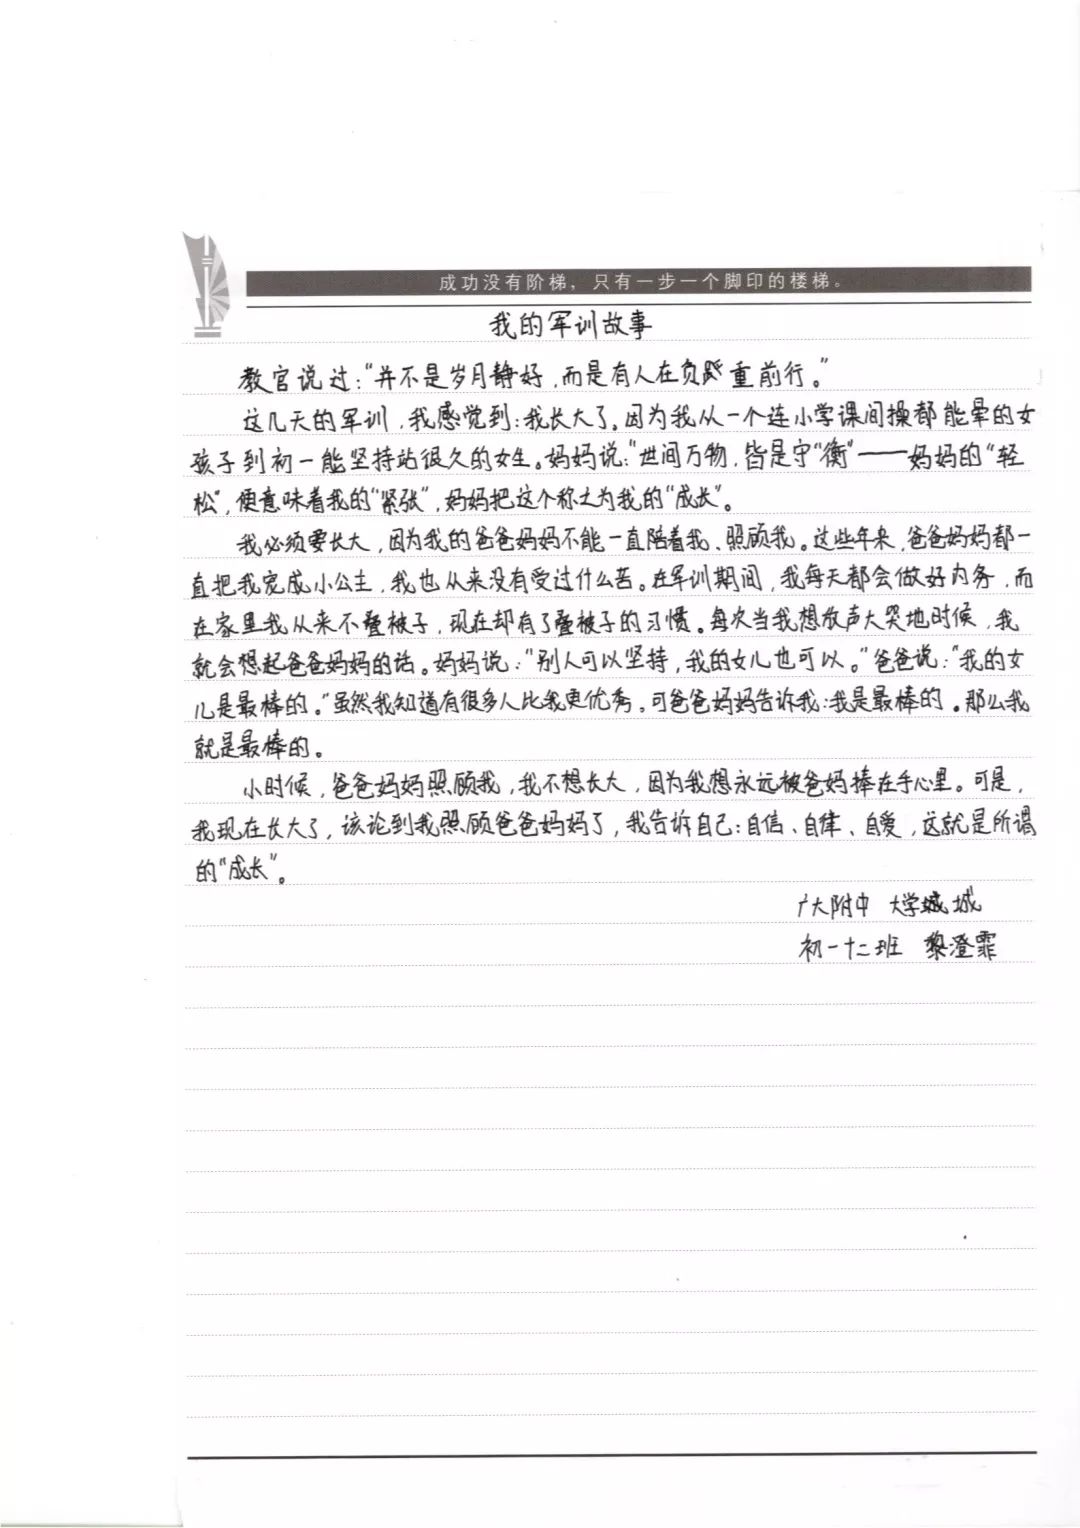 成功没有阶梯，只有一步一个脚印的楼梯。
我的军训故事
教官说过：“并不是岁月静好，而是有人在负重前行。”
这几天的军训，我感觉到：我长大了。因为我从一个连小学课间操都能晕的女
孩子到初一能坚持站很久的女生。妈妈说：“世间万物，皆是守“衡”——妈妈的“轻
松”，便意味着我的“紧张”，妈妈把这个称之为我的“成长”。
我必须要长大，因为我的爸爸妈妈不能一直陪着我、照顾我。这些年来，爸爸妈妈都一
直把我宠成小公主，我也从来没有受过什么苦。在军训期间，我每天都会做好内务，而
在家里我从来不叠被子，现在却有了叠被子的习惯。每次当我想放声大哭地时候，我
就会想起爸爸妈妈的话。妈妈说：“别人可以坚持，我的女儿也可以。”爸爸说：“我的女
儿是最棒的。”虽然我知道有很多人比我更优秀，可爸爸妈妈告诉我：我是最棒的。那么我
就是最棒的。
小时候，爸爸妈妈照顾我，我不想长大，因为我想永远被爸妈捧在手心里。可是，
我现在长大了，该论到我照顾爸爸妈妈了，我告诉自己：自信、自律、自爱，这就是所谓
的“成长”。
广大附中 大学城
初一十二班 黎澄霏